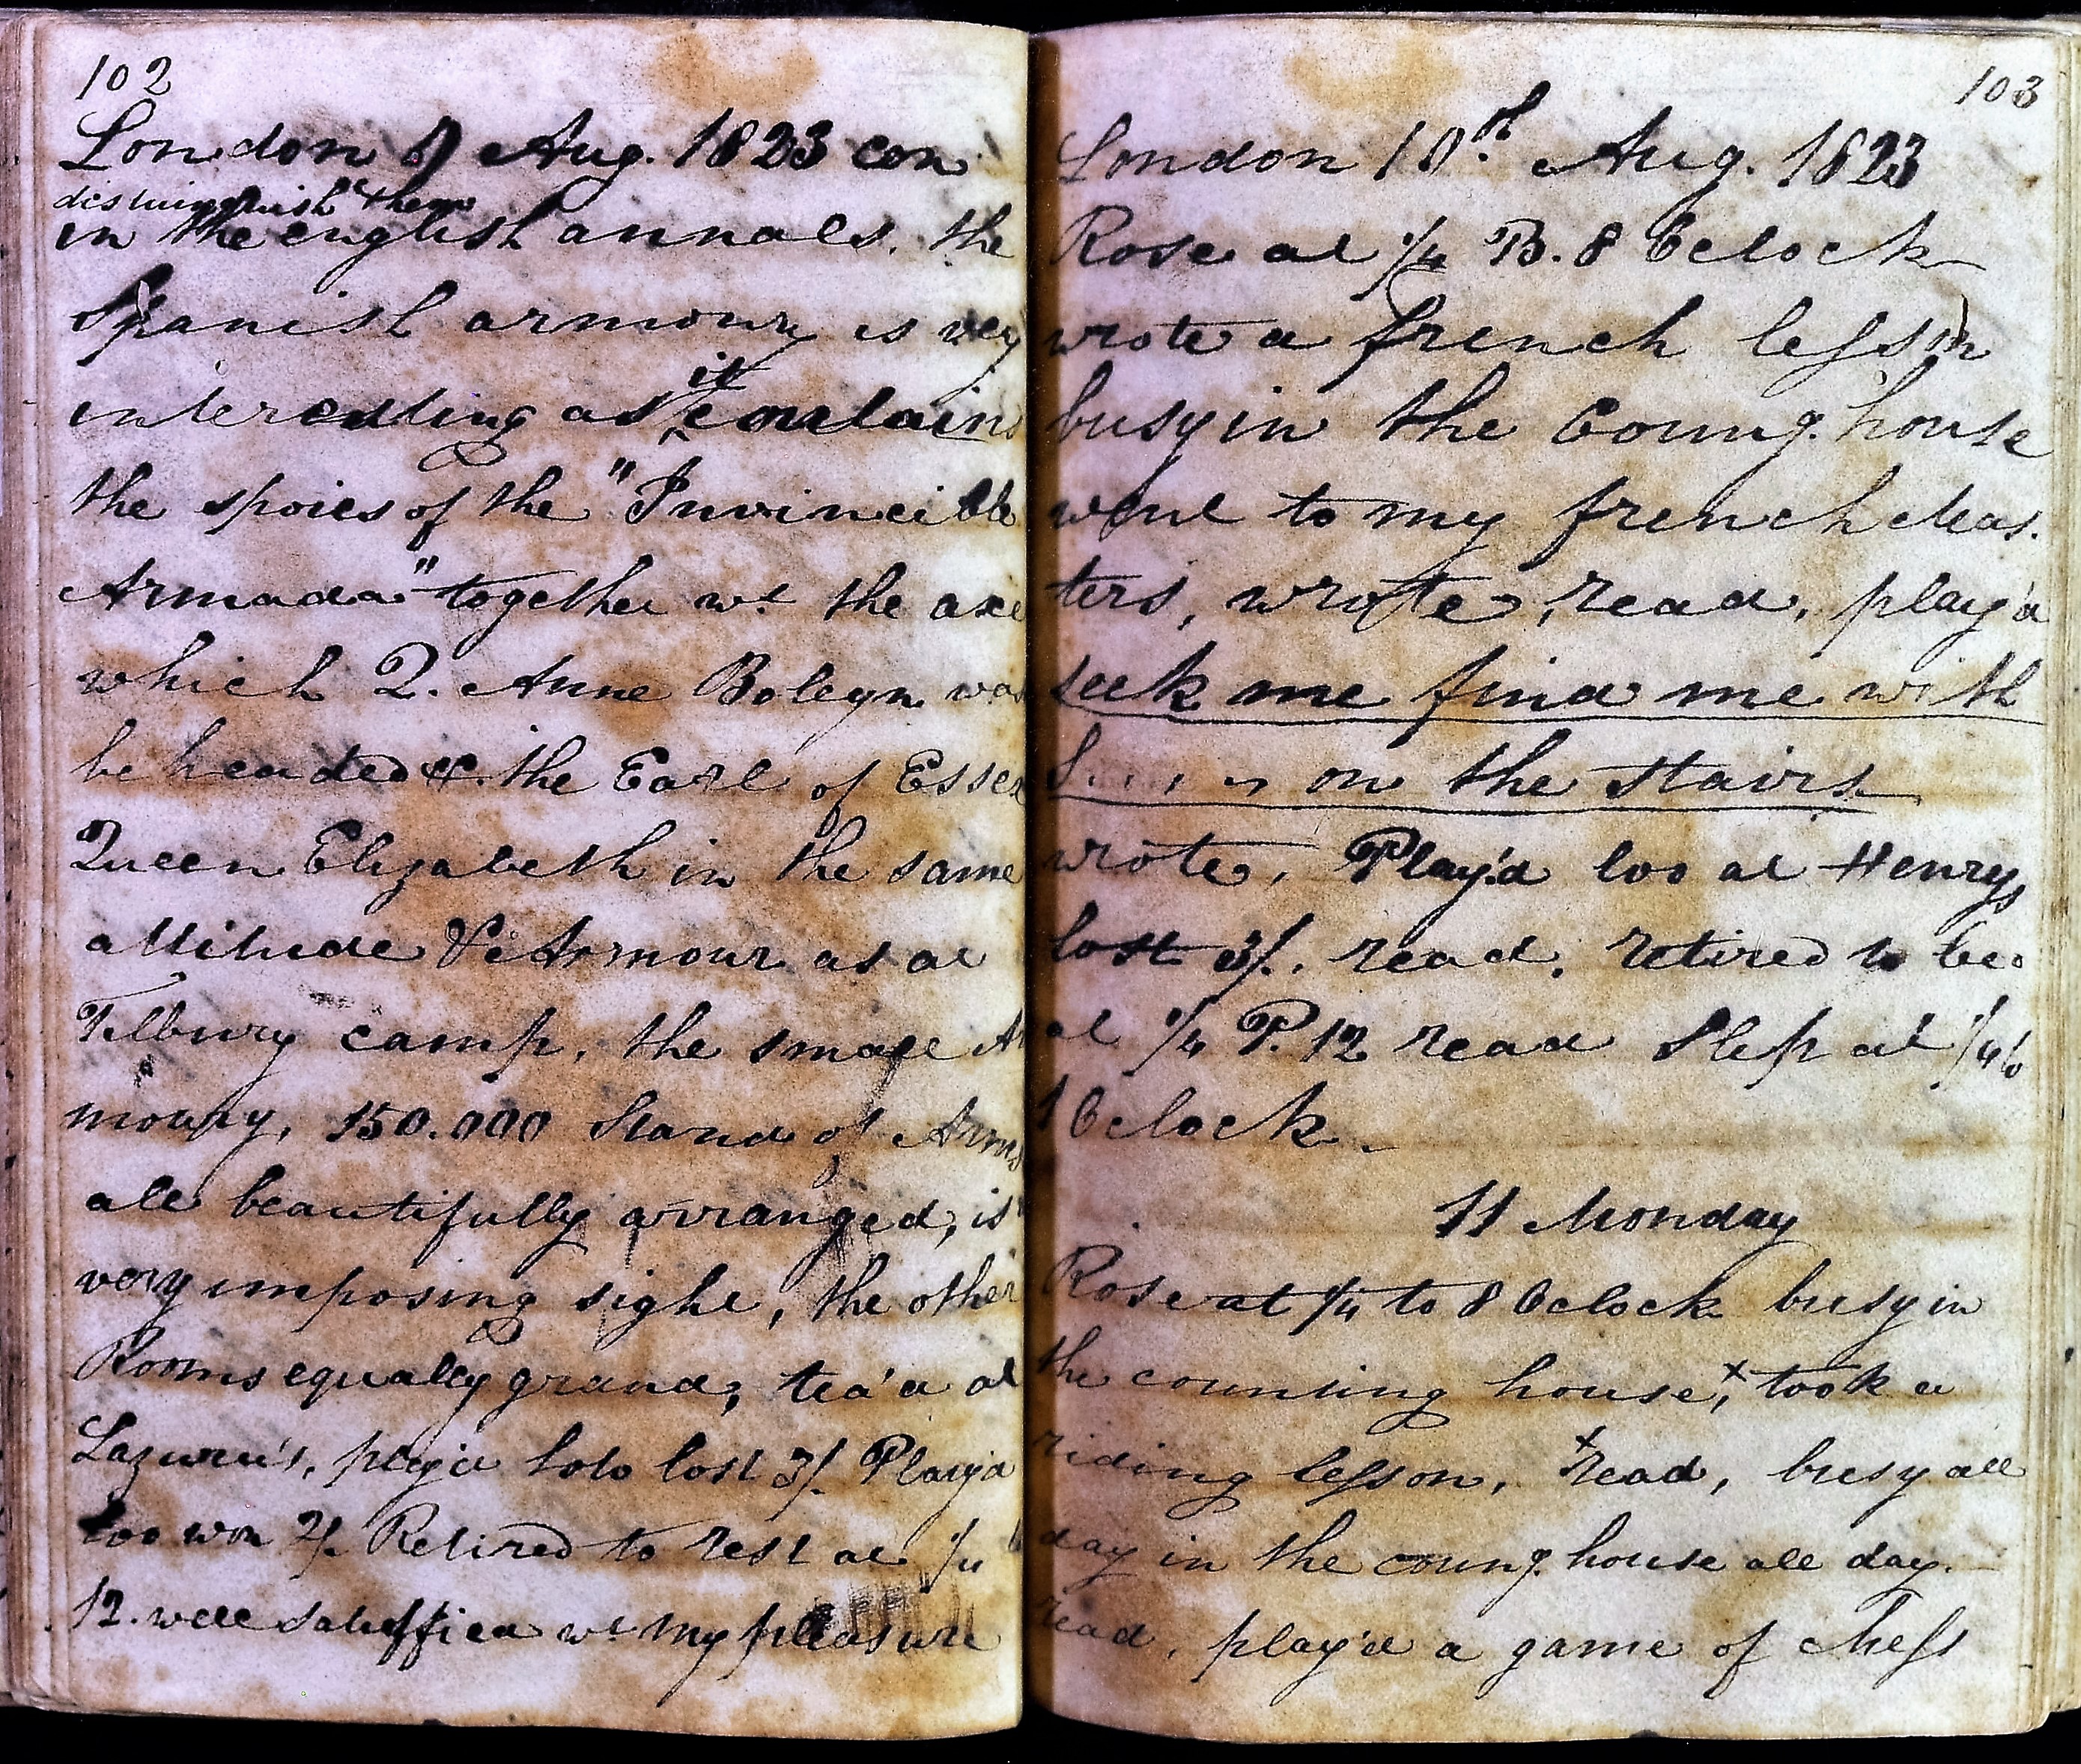 102
London 9 Aug. 1823 con
distinguish'd them
in the english annals. the
Spanish armoury is very
it
interesting as contains
the spoies of the "Invincible
Armada" together wt. the axe
which Q. Anne Boleyn was
beheaded &. the Earl of Essex
Queen Elizabeth in the same
attitude & Armour as at
Tilbury camp. the small Ar
moury, 150.000 Stand of Arms
all beautifully arranged, is
very imposing sight, the other
Rooms equally grand, tea'd at
play'd lost 3/. Play'd
Loo won 2/. Retired to rest at 1/4
12. well satisffied wt. my pleasure
103
London 10th. Aug. 1823
Rose at 1/4 B. 8 Oclock
wrote a french lesson
busy in the Coung. house
went to my french Mas.
ters, wrote, read, play'd
seek me find me with
S on the stairs
wrote, Play'd loo at Henrys
lost 3/. read. retired to bed
at 1/4 P. 12 read Slep at 1/4 to
1 Oclock.
11 Monday
Rose at 1/4 to 8 Oclock busy in
the counting house x, took a
riding lesson, x read, busy all
day in the coung. house all day.
read, play'd a game of Chess